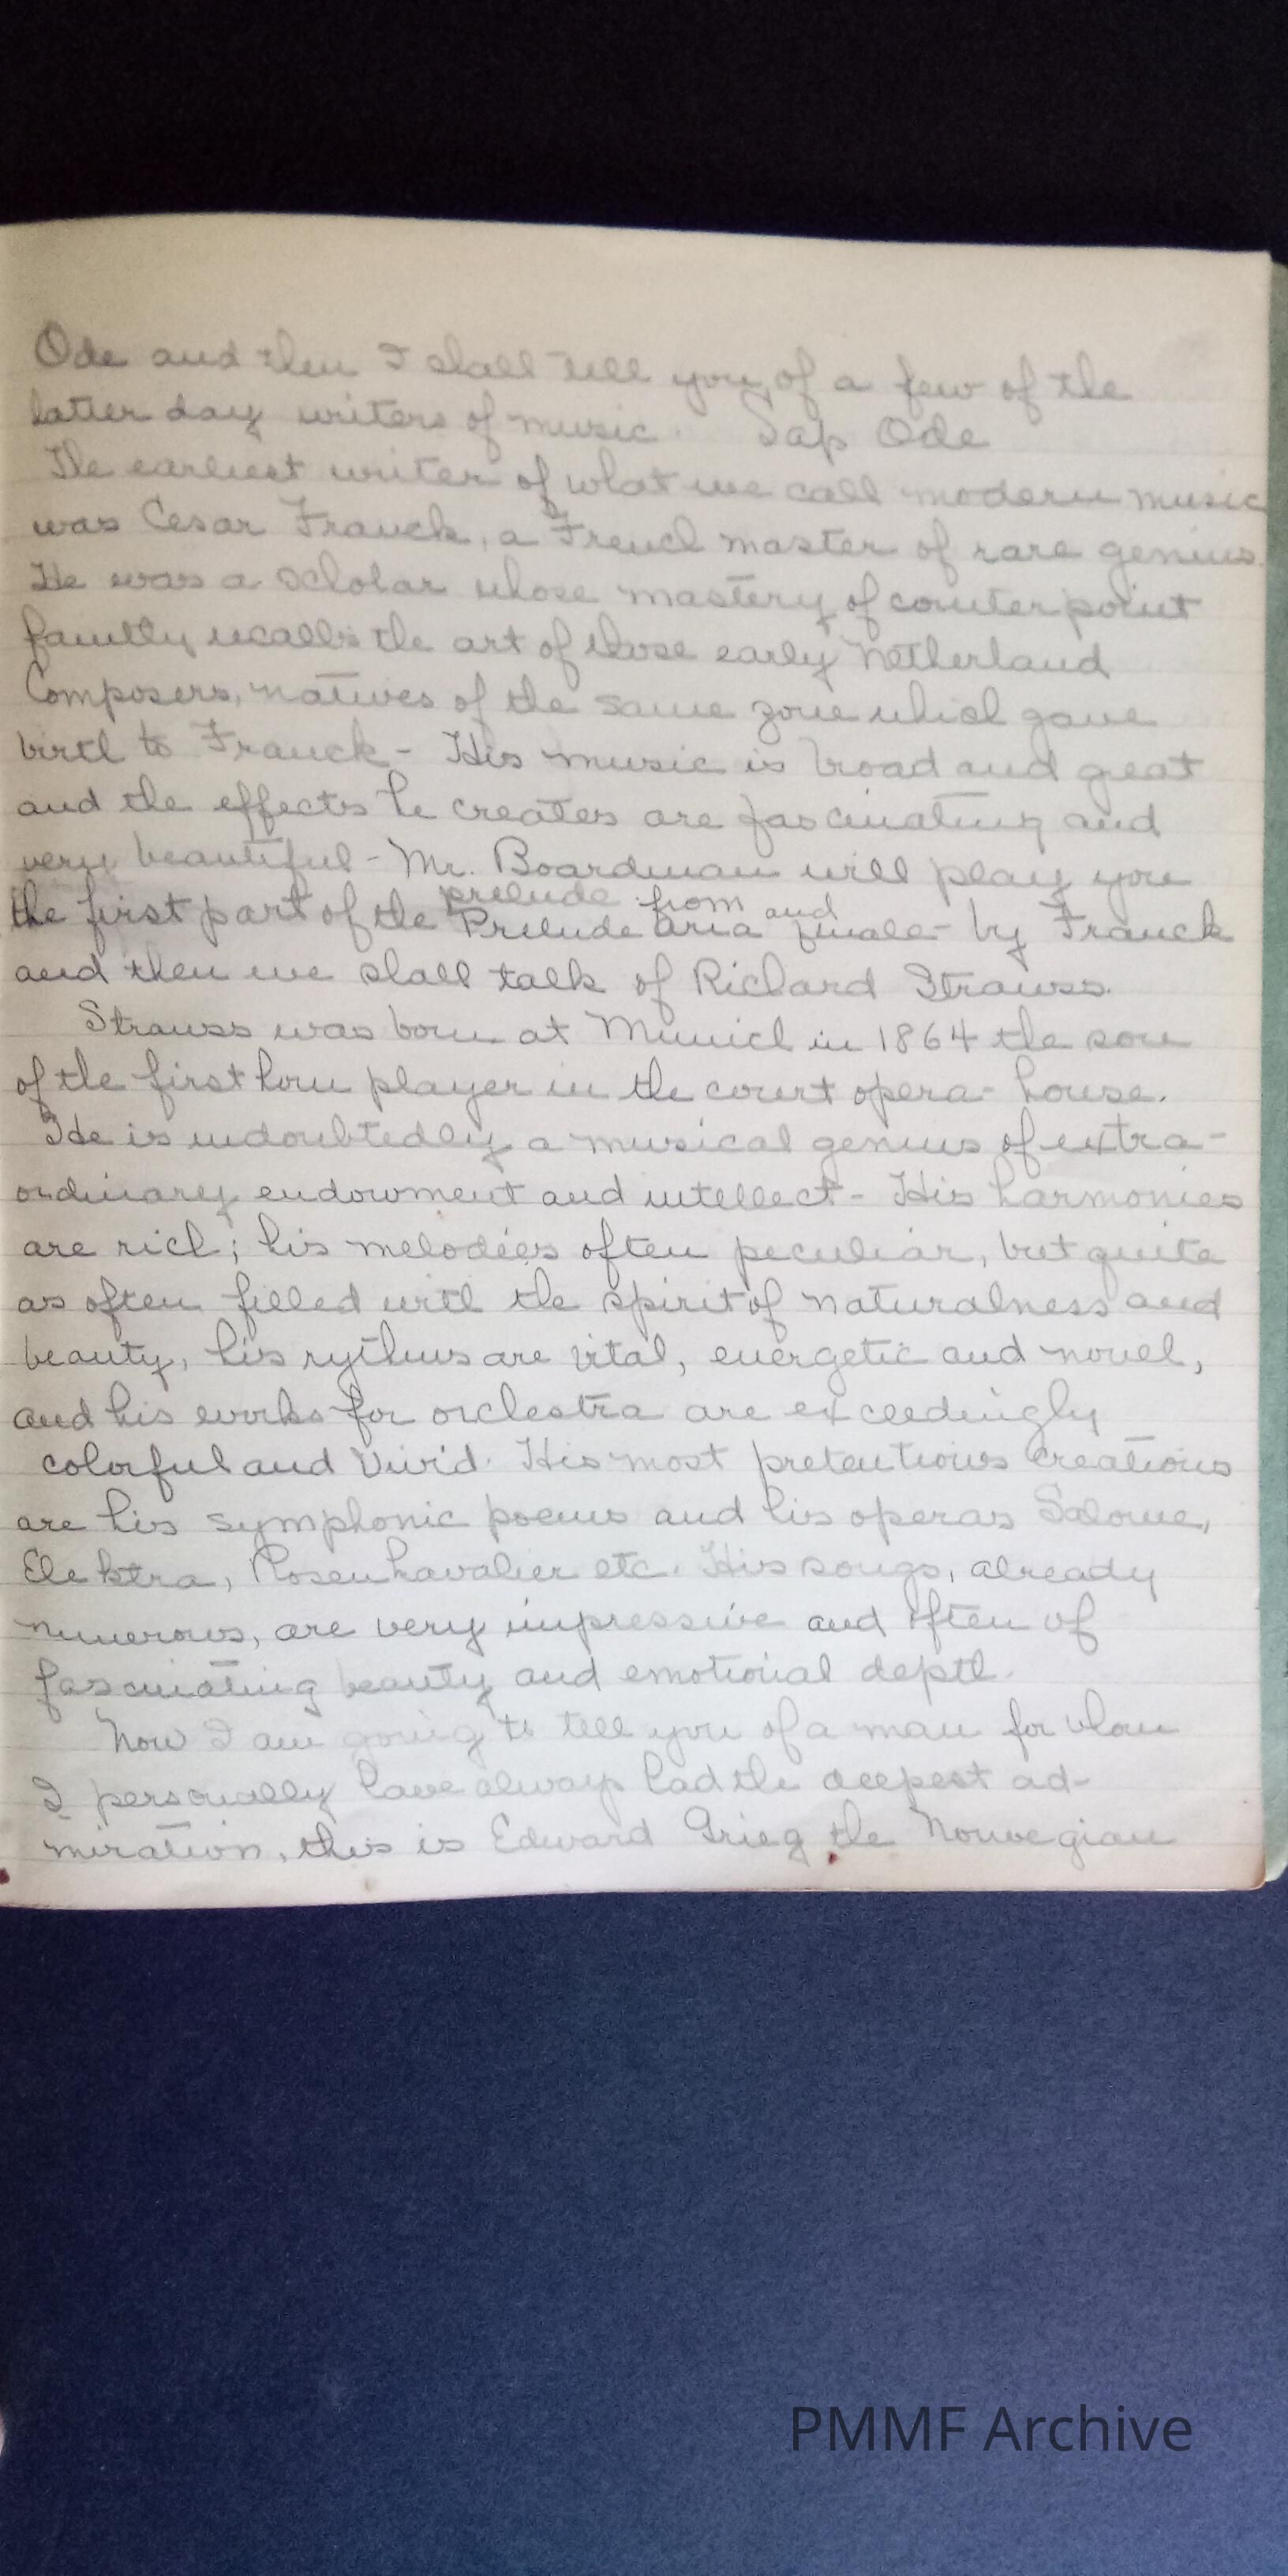 Ode and then I shall tell you of a few of the
latter day writers of music. Sap Ode
The earliest writer of what we call modern music
was Cesar Franck, a French master of rare genius.
He was a scholar whose mastery of counterpoint
faintly recalls the art of those early Netherland
Composers, natives of the same zone which gave
birth to Franck - His music is broad and great
and the effects he creates are fascinating and
very beautiful - Mr. Boardman will play you
prelude from and
the first part of the Prelude Aria finale - by Franck
and then we shall talk of Richard Strauss.
Strauss was born at Munich in 1864 the son
of the first horn player in the court opera-house.
He is undoubtedly a musical genius of extra-
ordinary endowment and intellect - His harmonies
are rich; his melodies often peculiar, but quite
as often filled with the spirit of naturalness and
beauty, his rythms are vital, energetic and novel,
and his works for orchestra are exceedingly
colorful and vivid. His most pretentious creations
are his symphonic poems and his operas Salome,
Elektra, Rosenkavalier etc. His songs, already
numerous, are very impressive and often of
fascinating beauty and emotional depth.
Now I am going to tell you of a man for whom
I personally have always had the deepest ad-
miration, this is Edward Grieg the Norwegian
PMMF Archive